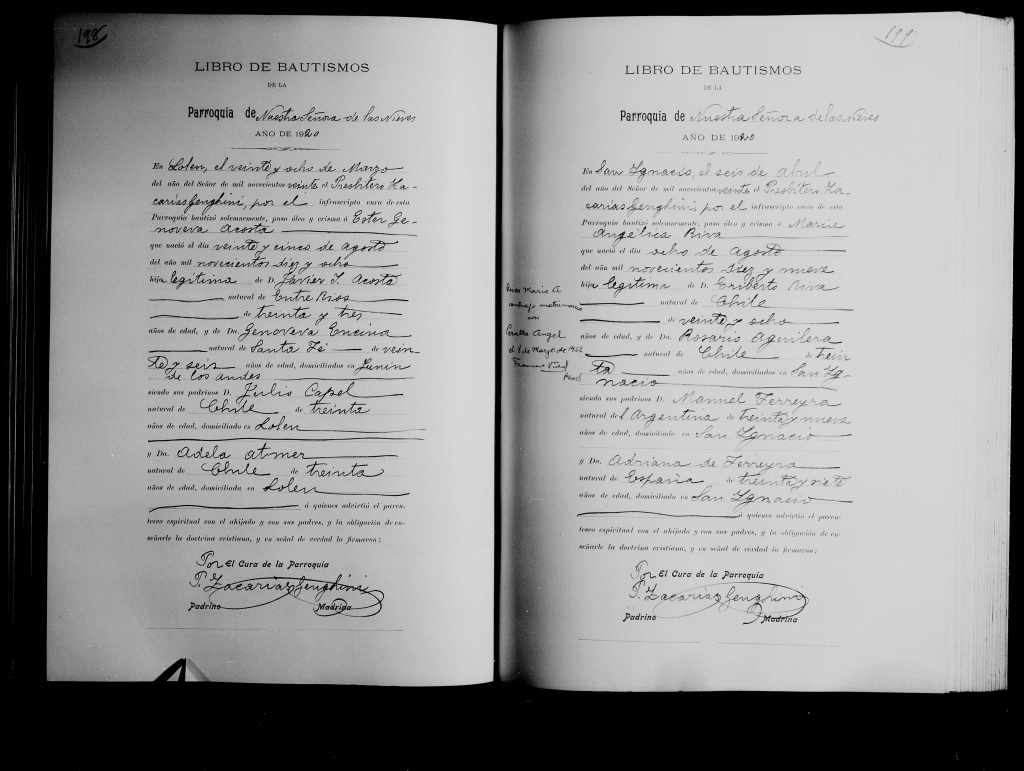 198
LIBRO DE BAUTISMOS
DE LA
Parroquia de Nuestra Señora de las Nieves
AÑO DE 1920
En Lolen, el veinte y ocho de Marzo
del año del Señor de mil novecientos veinte el Presbitero Za-
carías Genghini, por el infrascripto cura de esta
Parroquia bautizó solemnemente, puso óleo y crisma á Ester Ge-
noveva Acosta
que nació el día veinte y cinco de Agosto
del año mil novecientos diez y ocho
hija legítima de D. Javier I. Acosta
natural de Entre Rios
de treinta y tres
años de edad, y de Da. Genoveva Encina
natural de Santa Fé de vein
te y seis años de edad, domiciliados en Junin
de los andes
siendo sus padrinos D. Julio Capel
natural de Chile de treinta
años de edad, domiciliado en Lolen
y Da. Adela atmer
natural de Chile de treinta
años de edad, domiciliada en Lolen
á quienes advirtió el paren-
tesco espiritual con el ahijado y con sus padres, y la obligación de en-
señarle la doctrina cristiana, y en señal de verdad lo firmaron:
Por El Cura de la Parroquia
P. Zacarías Genghini
Padrino Madrina
199
LIBRO DE BAUTISMOS
DE LA
Parroquia de Nuestra Señora de las Nieves
AÑO DE 1920
En San Ignacio, el seis de abril
del año del Señor de mil novecientos veinte el Presbitero Za-
carías Genghini, por el infrascripto cura de esta
Parroquia bautizó solemnemente, puso óleo y crisma á Maria
Angélica Riva
que nació el día ocho de Agosto
del año mil novecientos diez y nueve
hija legítima de D. Eriberto Riva
natural de Chile
de veinte y ocho
años de edad, y de Da. Rosario Aguilera
natural de Chile de trein
ta años de edad, domiciliados en San Ig-
nacio
siendo sus padrinos D. Manuel Ferreyra
natural de l Argentina de treinta y nueve
años de edad, domiciliado en San Ignacio
y Da. Adriana de Ferreyra
natural de España de treinta y siete
años de edad, domiciliada en San Ignacio
á quienes advirtió el paren-
tesco espiritual con el ahijado y con sus padres, y la obligación de en-
señarle la doctrina cristiana, y en señal de verdad lo firmaron:
Por El Cura de la Parroquia
P. Zacarías Genghini
Padrino Madrina
Maria A
matrimonio
con
Angel
de Marzo de